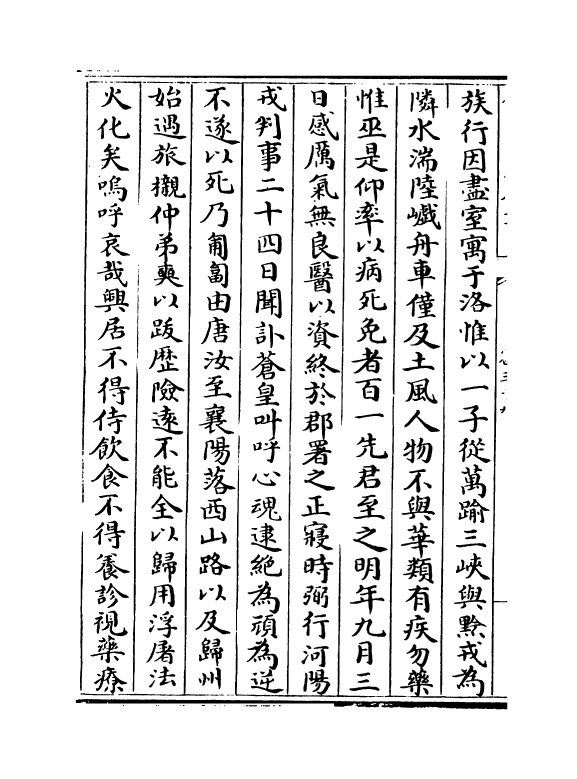 族行因盡室寓于洛惟以一子從萬踰三峽與黔戎為
隣水湍陸巇舟車僅及土風人物不與華類有疾勿藥
惟巫是仰率以病死免者百一先君至之明年九月三
日感厲氣無良醫以資終於郡署之正寢時弼行河陽
戎判事二十四日聞訃蒼皇叫呼心魂逮絕為頑為逆
不遂以死乃匍匐由唐汝至襄陽落西山路以及歸州
始遇旅櫬仲弟奭以跋歷險遠不能全以歸用浮屠法
火化矣嗚呼哀哉興居不得侍飲食不得養診視藥療